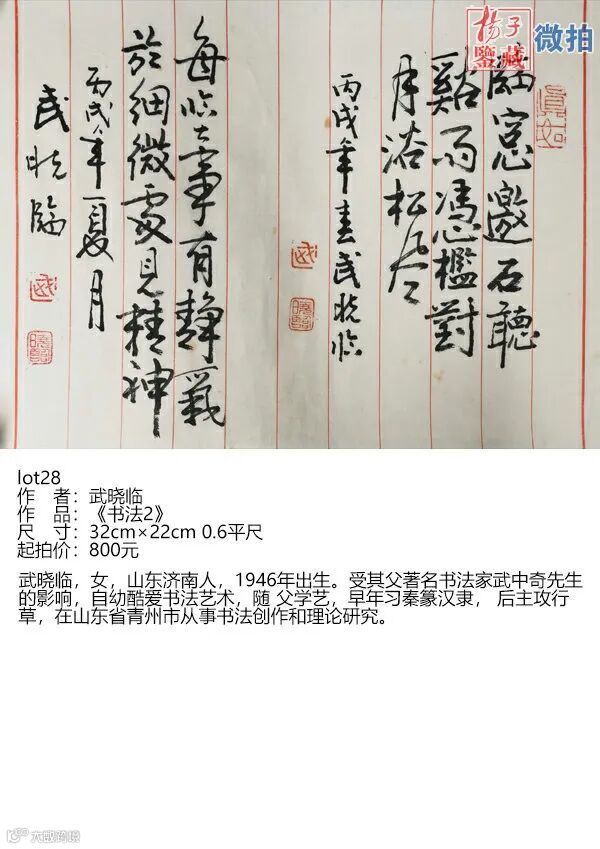 杨子
鑒藏
微拍
真如
臨窓邀石聽
谿雨馮檻對
月浴松
丙戌年春武晓临
武
每临大事有靜氣
於細微處見精神
丙戌年夏月
武晓临
武
lot28
作 者：武晓临
作 品：《书法2》
尺 寸：32cm×22cm 0.6平尺
起拍价：800元
武晓临，女，山东济南人，1946年出生。受其父著名书法家武中奇先生
的影响，自幼酷爱书法艺术，随 父学艺，早年习秦篆汉隶， 后主攻行
草，在山东省青州市从事书法创作和理论研究。
大盛跨境